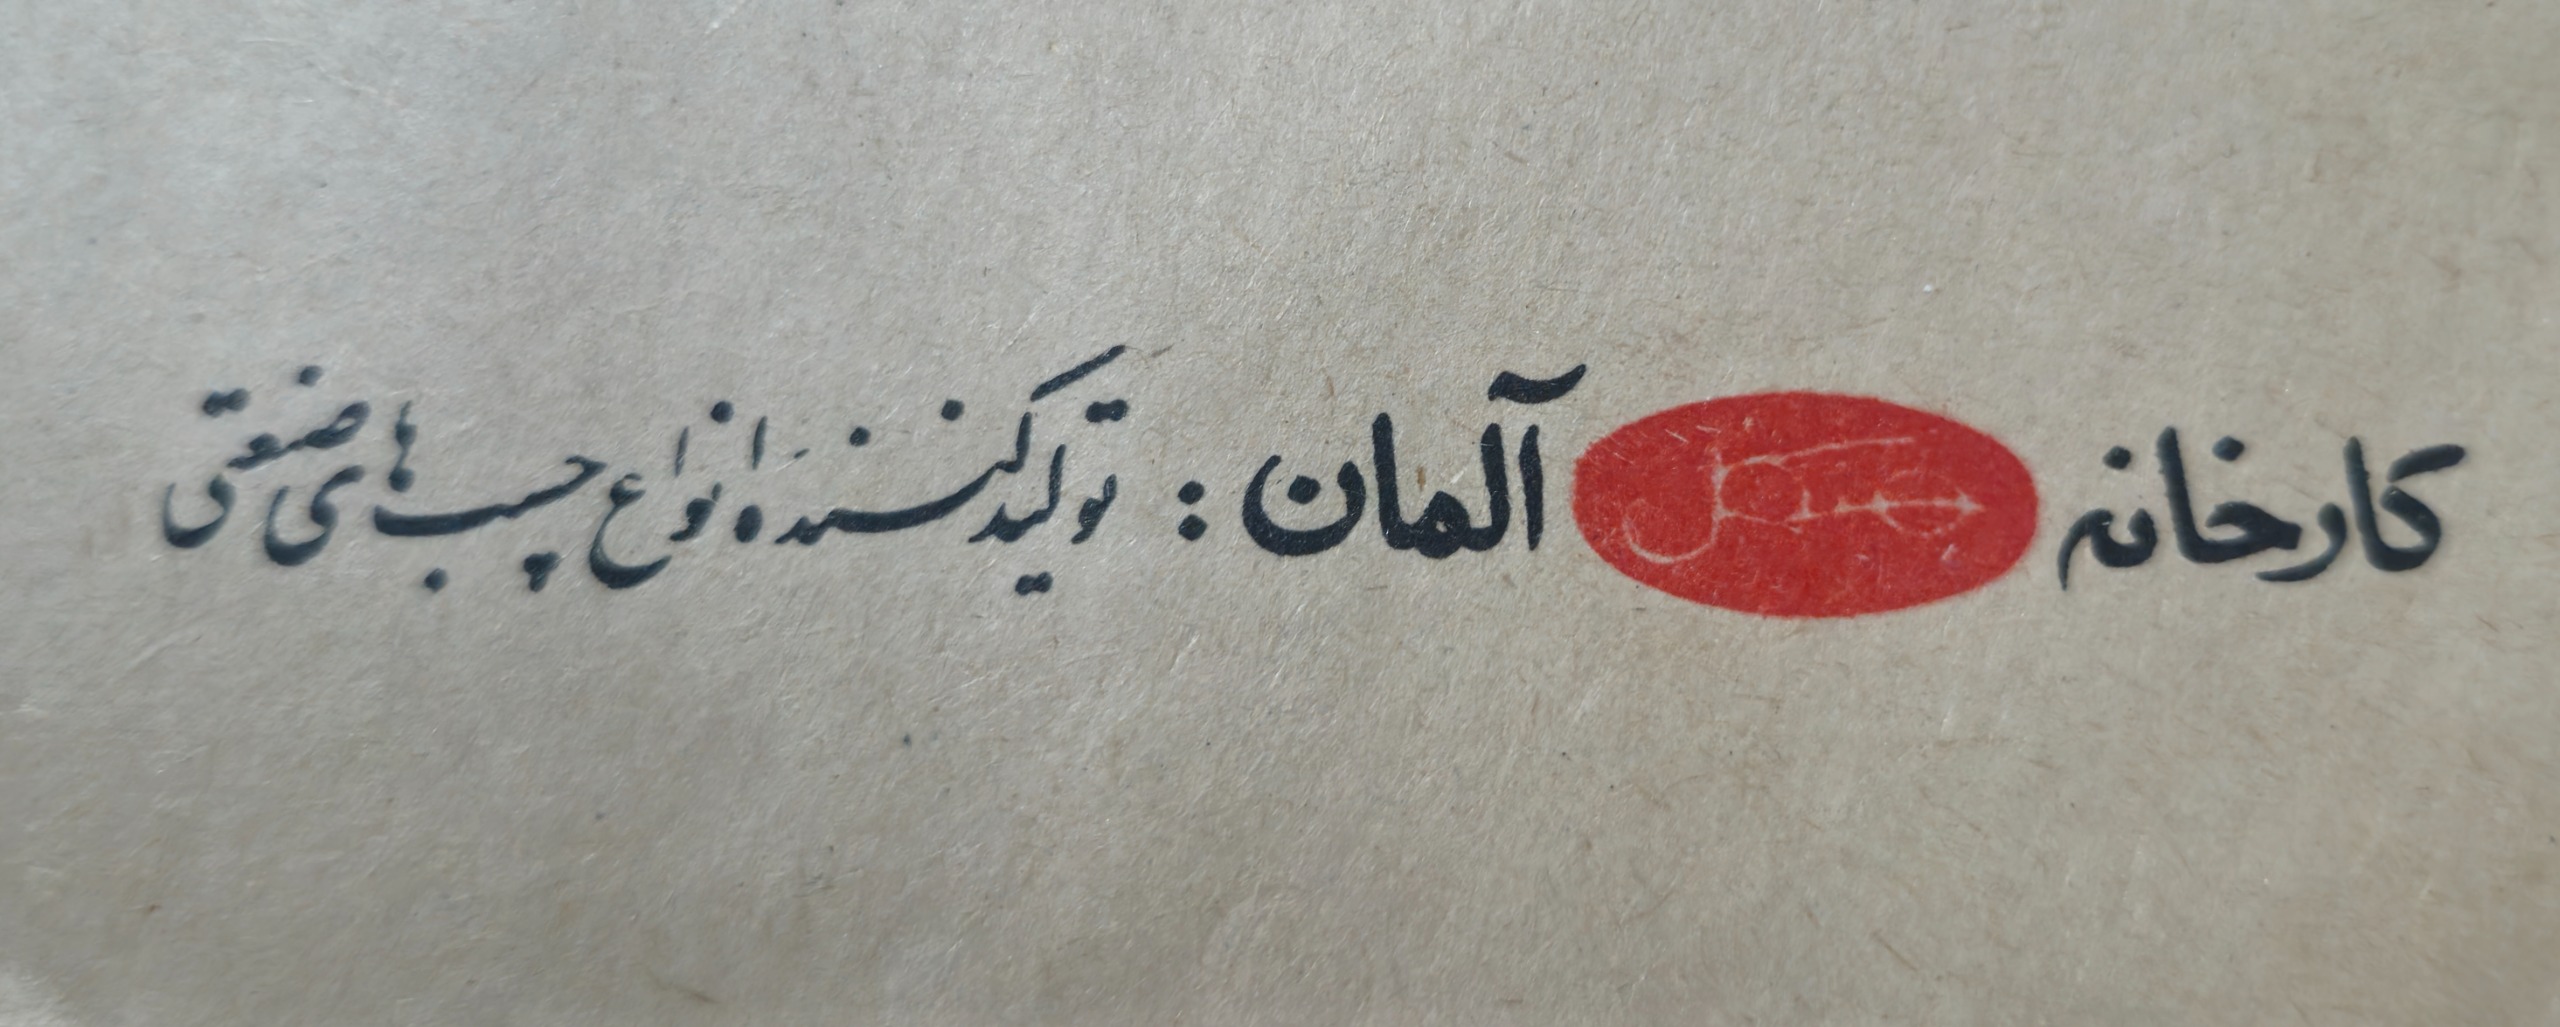 کارخانه هنکل آلمان : تولید کننده انواع چسب های صنعتی